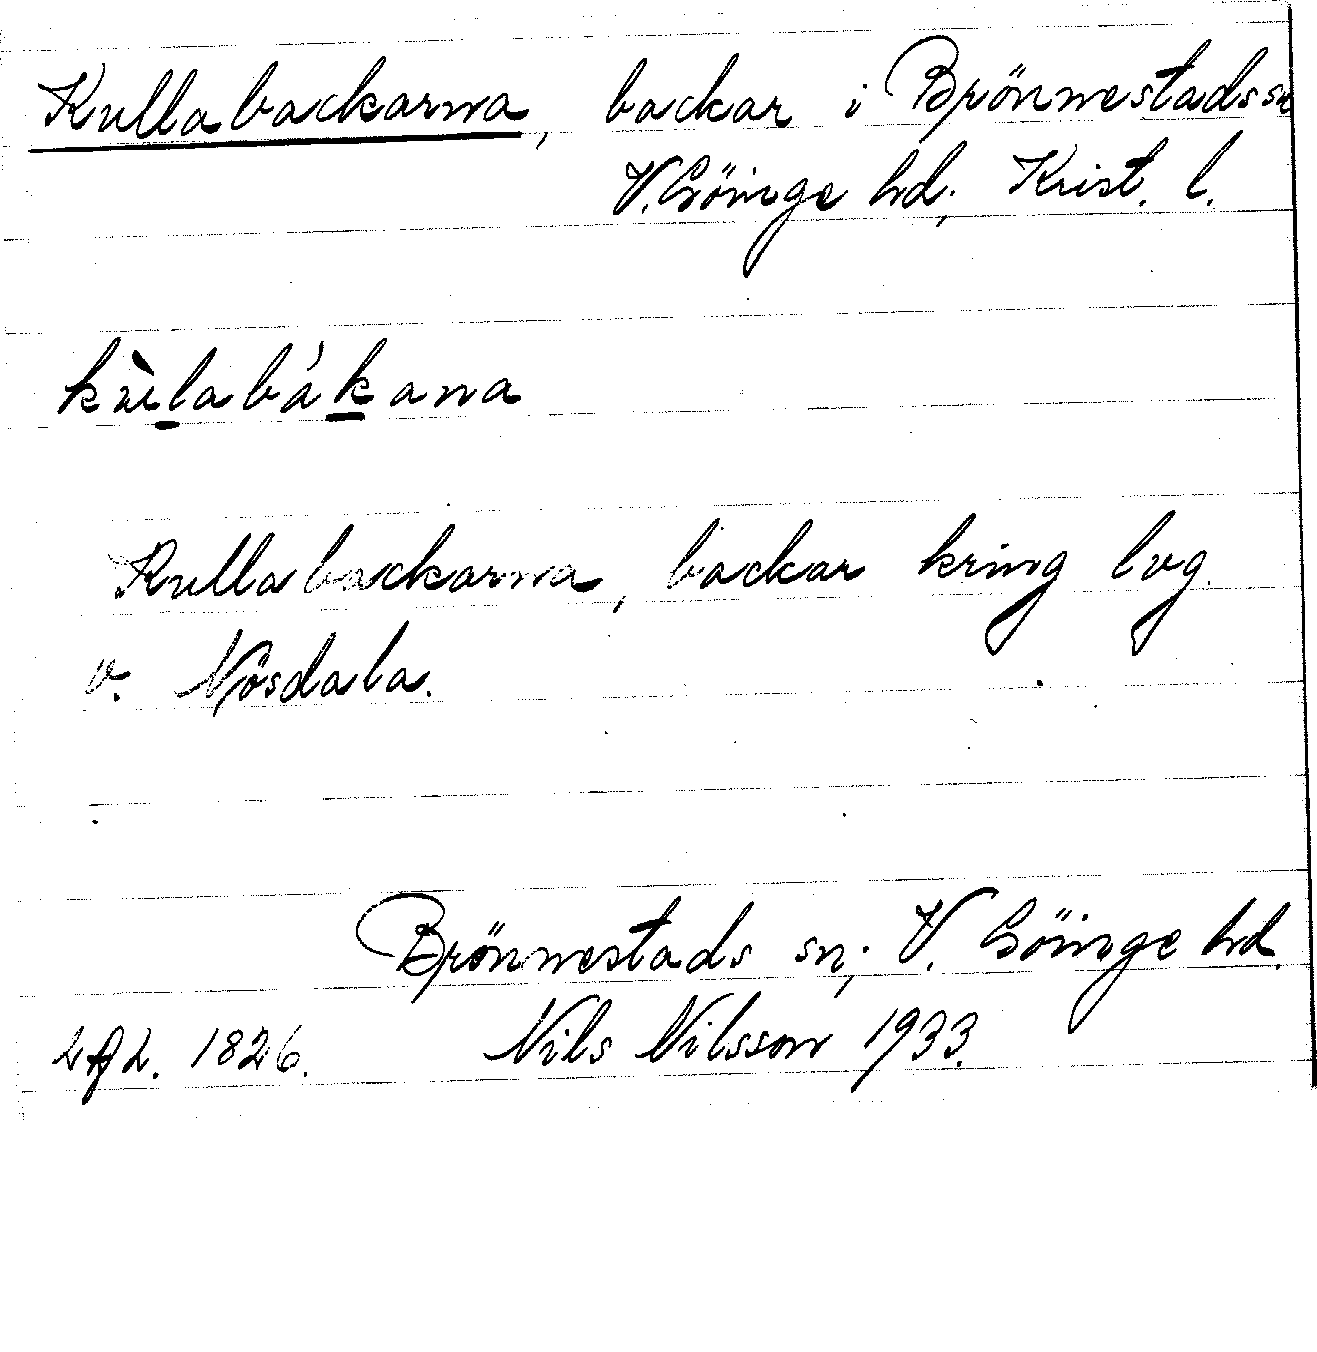 Kullabackarna, backar i Brönnestads sn
V. Göinge hd; Krist. l.
kùlabákana
Kullabackarna, backar kring lvg.
v. Nösdala.
Brönnestads sn; V. Göinge hd.
LAL. 1826. Nils Nilsson 1933.